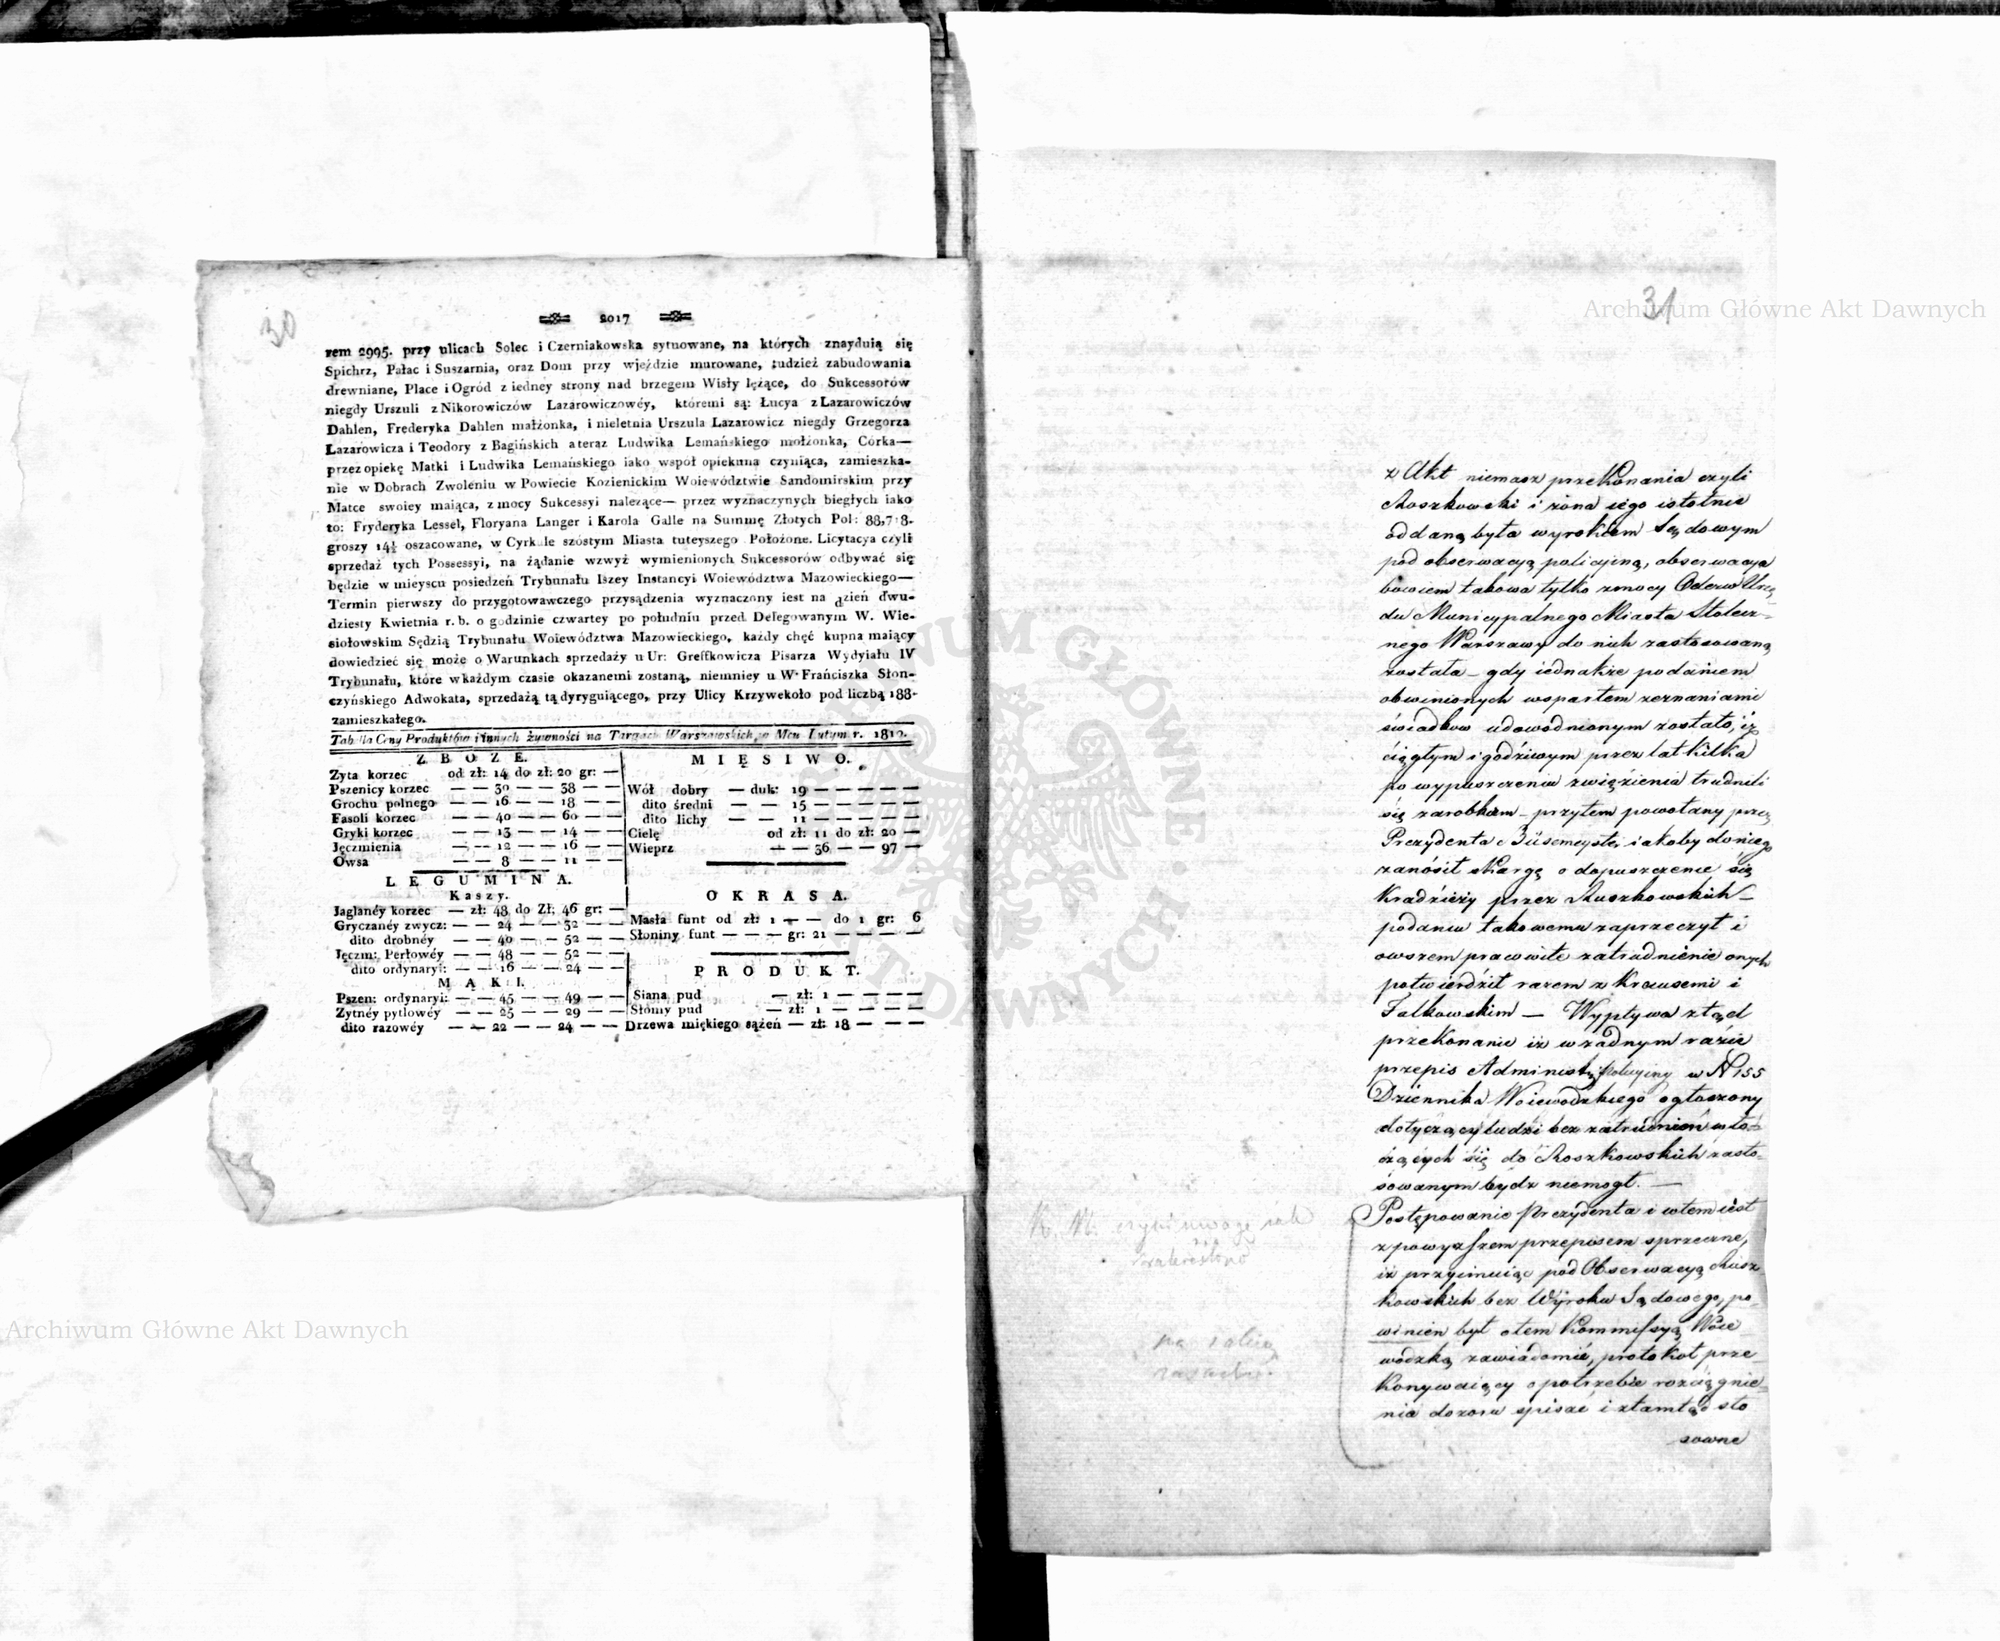 30
2017
rem 2995. przy ulicach Solec i Czerniakowska sytuowane, na których znayduią się
Spichrz, Pałac i Suszarnia, oraz Dom przy wjeździe murowane, tudzież zabudowania
drewniane, Place i Ogród z iedney strony nad brzegem Wisły lężące, do Sukcessorów
niegdy Urszuli z Nikorowiczów Lazarowiczowéy, któremi są: Łucya z Lazarowiczów
Dahlen, Frederyka Dahlen małżonka, i nieletnia Urszula Lazarowicz niegdy Grzegorza
Lazarowicza i Teodory z Bagińskich a teraz Ludwika Lemańskiego mołżonka, Córka—
przez opiekę Matki i Ludwika Lemańskiego iako wspól opiekuna czyniąca, zamieszka-
nie w Dobrach Zwoleniu w Powiecie Kozienickim Woiewództwie Sandomirskim przy
Matce swoiey maiąca, z mocy Sukcessyi nalezące— przez wyznaczynych biegłych iako
to: Fryderyka Lessel, Floryana Langer i Karola Galle na Summę Złotych Pol: 88,718.
groszy 14½ oszacowane, w Cyrkule szóstym Miasta tuteyszego Położone. Licytacya czyli
sprzedaż tych Possessyi, na żądanie wzwyż wymienionych Sukcessorów odbywać się
będzie w mieyscu posiedzeń Trybunału Iszey Instancyi Woiewództwa Mazowieckiego—
Termin pierwszy do przygotowawczego przysądzenia wyznaczony iest na dzień dwu-
dziesty Kwietnia r. b. o godzinie czwartey po południu przed Delegowanym W. Wie-
siołowskim Sędzią Trybunału Woiewództwa Mazowieckiego, każdy chęć kupna maiący
dowiedzieć się może o Warunkach sprzedaży u Ur: Greffkowicza Pisarza Wydyiału IV
Trybunału, które w każdym czasie okazanemi zostaną, niemniey u W. Franciszka Słon-
czyńskiego Adwokata, sprzedażą tą dyryguiącego, przy Ulicy Krzywekoło pod liczbą 188.
zamieszkałego.
Tabella Ceny Produktów i innych żywności na Targach Warszawskich w Mcu Lutym r. 1819.
ZBOŻE.
Zyta korzec od zł: 14 do zł: 20 gr: —
Pszenicy korzec — — 30 — — 38 — —
Grochu polnego — — 16 — — 18 — —
Fasoli korzec — — 40 — — 60 — —
Gryki korzec — — 13 — — 14 — —
Jęczmienia — — 12 — — 16 — —
Owsa — — 8 — — 11 — —
LEGUMINA.
Kaszy.
Jaglanéy korzec — zł: 43 do Zł: 46 gr: —
Gryczanéy zwycz: — — 24 — — 32 — —
dito drobnéy — — 40 — — 52 — —
Jęczm: Perłowéy — — 48 — — 52 — —
dito ordynaryi: — — 16 — — 24 — —
MĄKI.
Pszen: ordynaryi: — — 45 — — 49 — —
Zytnéy pytlowéy — — 25 — — 29 — —
dito razowéy — — 22 — — 24 — —
MIĘSIWO.
Wół dobry — duk: 19 — — — — —
dito średni — — 15 — — — — —
dito lichy — — 11 — — — — —
Cielę od zł: 11 do zł: 20 —
Wieprz — — 36 — — 97 —
OKRASA.
Masła funt od zł: 1 — — do 1 gr: 6
Słoniny funt — — — gr: 21 — — — —
PRODUKT.
Siana pud — zł: 1 — — — —
Słomy pud — zł: 1 — — — —
Drzewa miękiego sążeń — zł: 18 — — —
31
z Akt niemasz przekonania czyli
Roszkowski i żona iego istotnie
oddaną była wyrokiem Sądowym
pod obserwacyą policyiną, obserwacya
bowiem takowa tylko z mocy Odezw Urzę-
du Municypalnego Miasta Stołecz-
nego Warszawy do nich zastosowaną
została – gdy iednakże podaniem
obwinionych wspartem zeznaniami
świadków udowodnionym zostało, iż
ciągłym i godziwym przez lat kilka
po wypuszczeniu z więzienia trudnili
się zarobkiem – przytem powołany przez
Prezydenta iakoby do niego
zanósił skargę o dopuszczenie się
Kradzieży przez Ruszkowskich –
podaniu takowemu zaprzeczył i
owszem prawowite zatrudnienie onych
potwierdził razem z Krausemi i
Falkowskim — Wypływa ztąd
przekonanie iż w żadnym razie
przepis Administ: policyiny w N 155
Dziennika Woiewodzkiego ogłoszony
dotyczący ludzi bez zatrudnień włó-
czących się do Roszkowskich zasto-
sowanym bydz niemogł. —
Postępowanie Prezydenta i wtem iest
z powyższem przepisem sprzeczne,
iż przyimuiąc pod Obserwacyą Rusz-
kowskich bez Wyroku Sądowego, po-
winien był otem Kommissyą Woie
wodzką zawiadomić, protokół prze-
konywaiący o potrzebie rozciągnie-
nia dozoru spisać i ztamtąd sto
sowne
czyni uwagę
zakreślono
Archiwum Główne Akt Dawnych
Archiwum Główne Akt Dawnych
ARCHIWUM GŁÓWNE AKT DAWNYCH